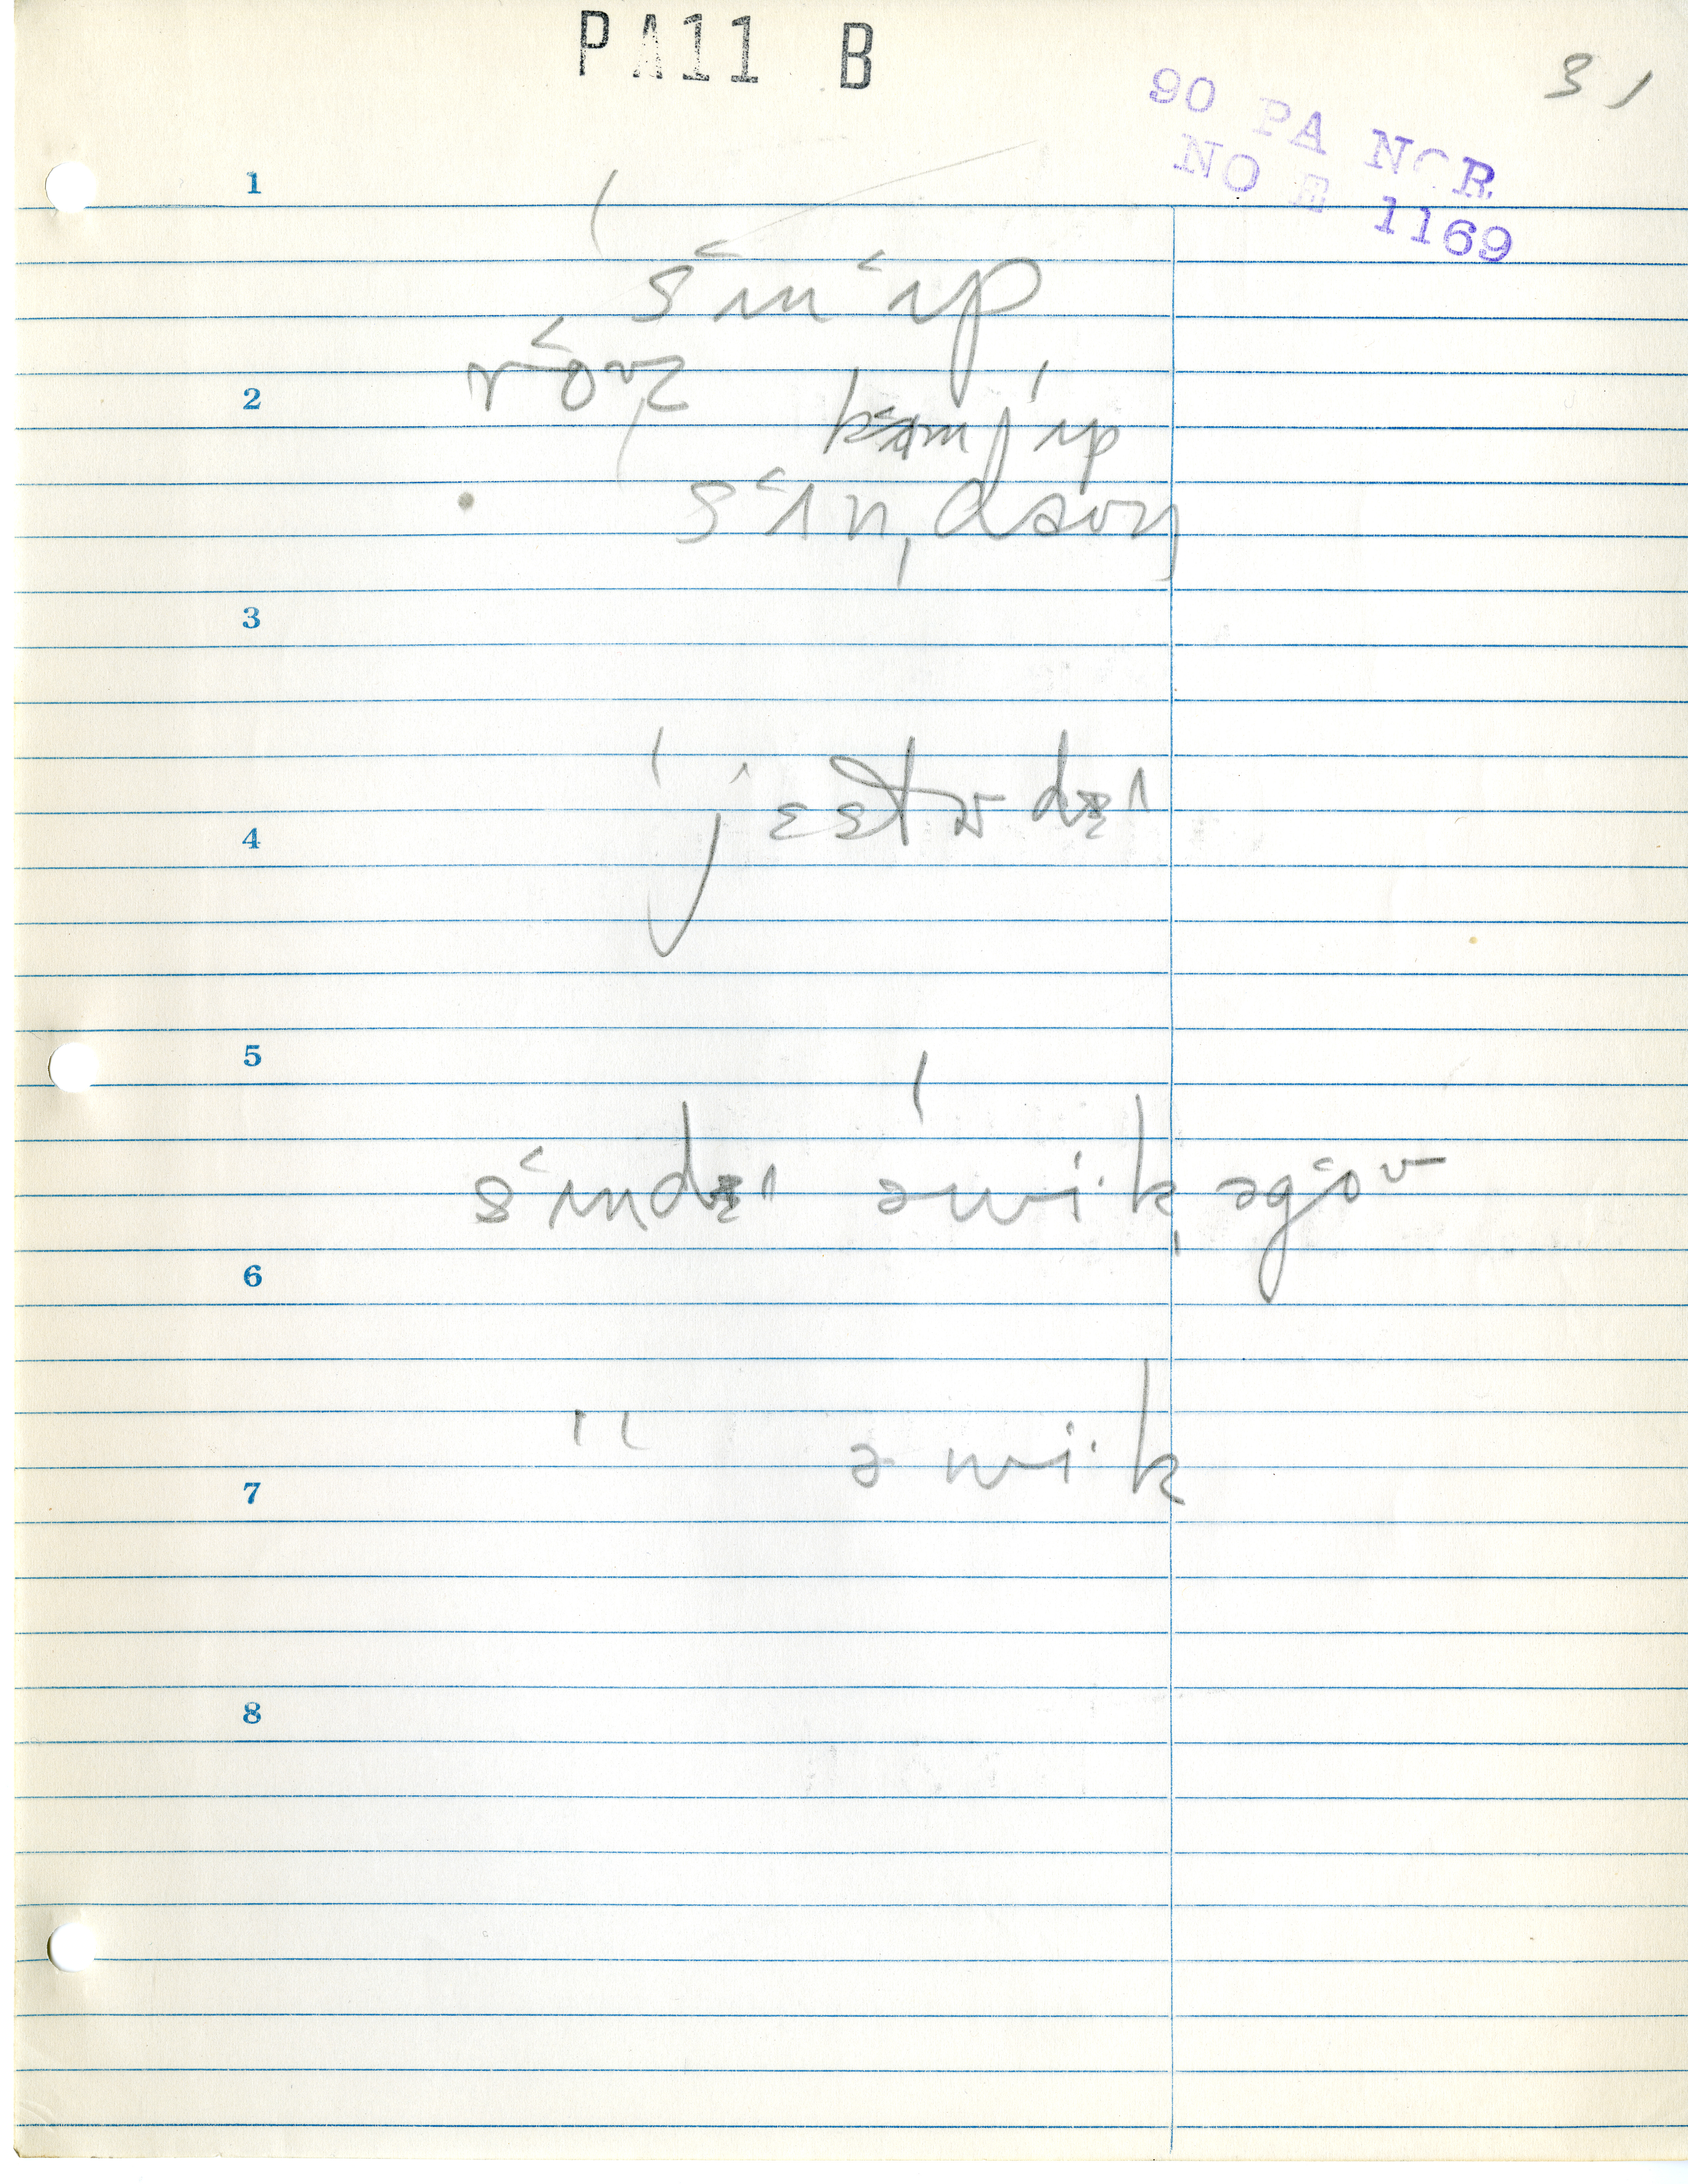 PA11 B
31
90 PA NOR
NO E 1169
1
ˈs˂ʌn˂ʌp
r˂oʊz
2
k˂ʌmˈʌp
s˂ʌnˌdaʊn
3
ˈjɛɛtɚdɪ
4
5
s˂ʌndɪ ˈəwi·kˌəg˂oʊ
6
" əwi·k
7
8